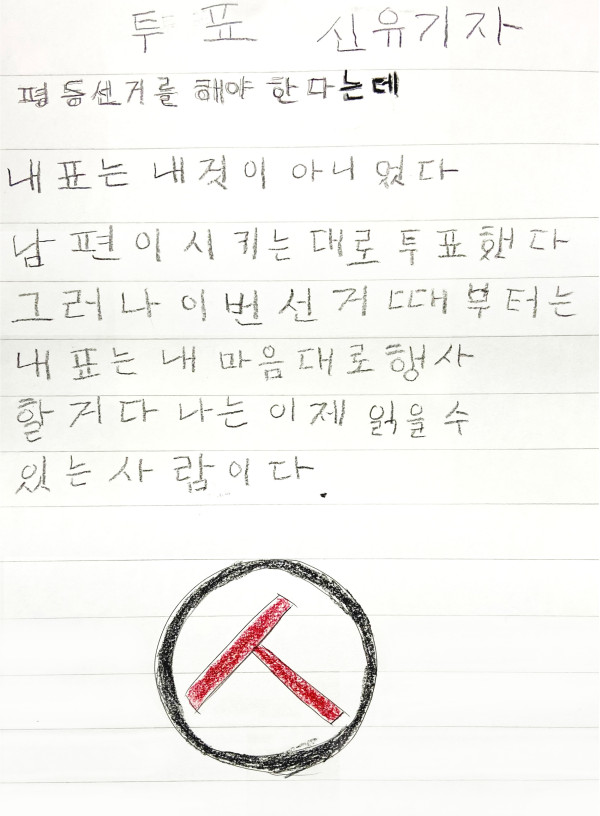 투표 신유기자
평등선거를 해야 한다는데
내 표는 내 것이 아니 었다
남편이 시키는 대로 투표했다
그러나 이번 선거 때부터는
내 표는 내 마음대로 행사
할 거다 나는 이제 읽을 수
있는 사람이다.